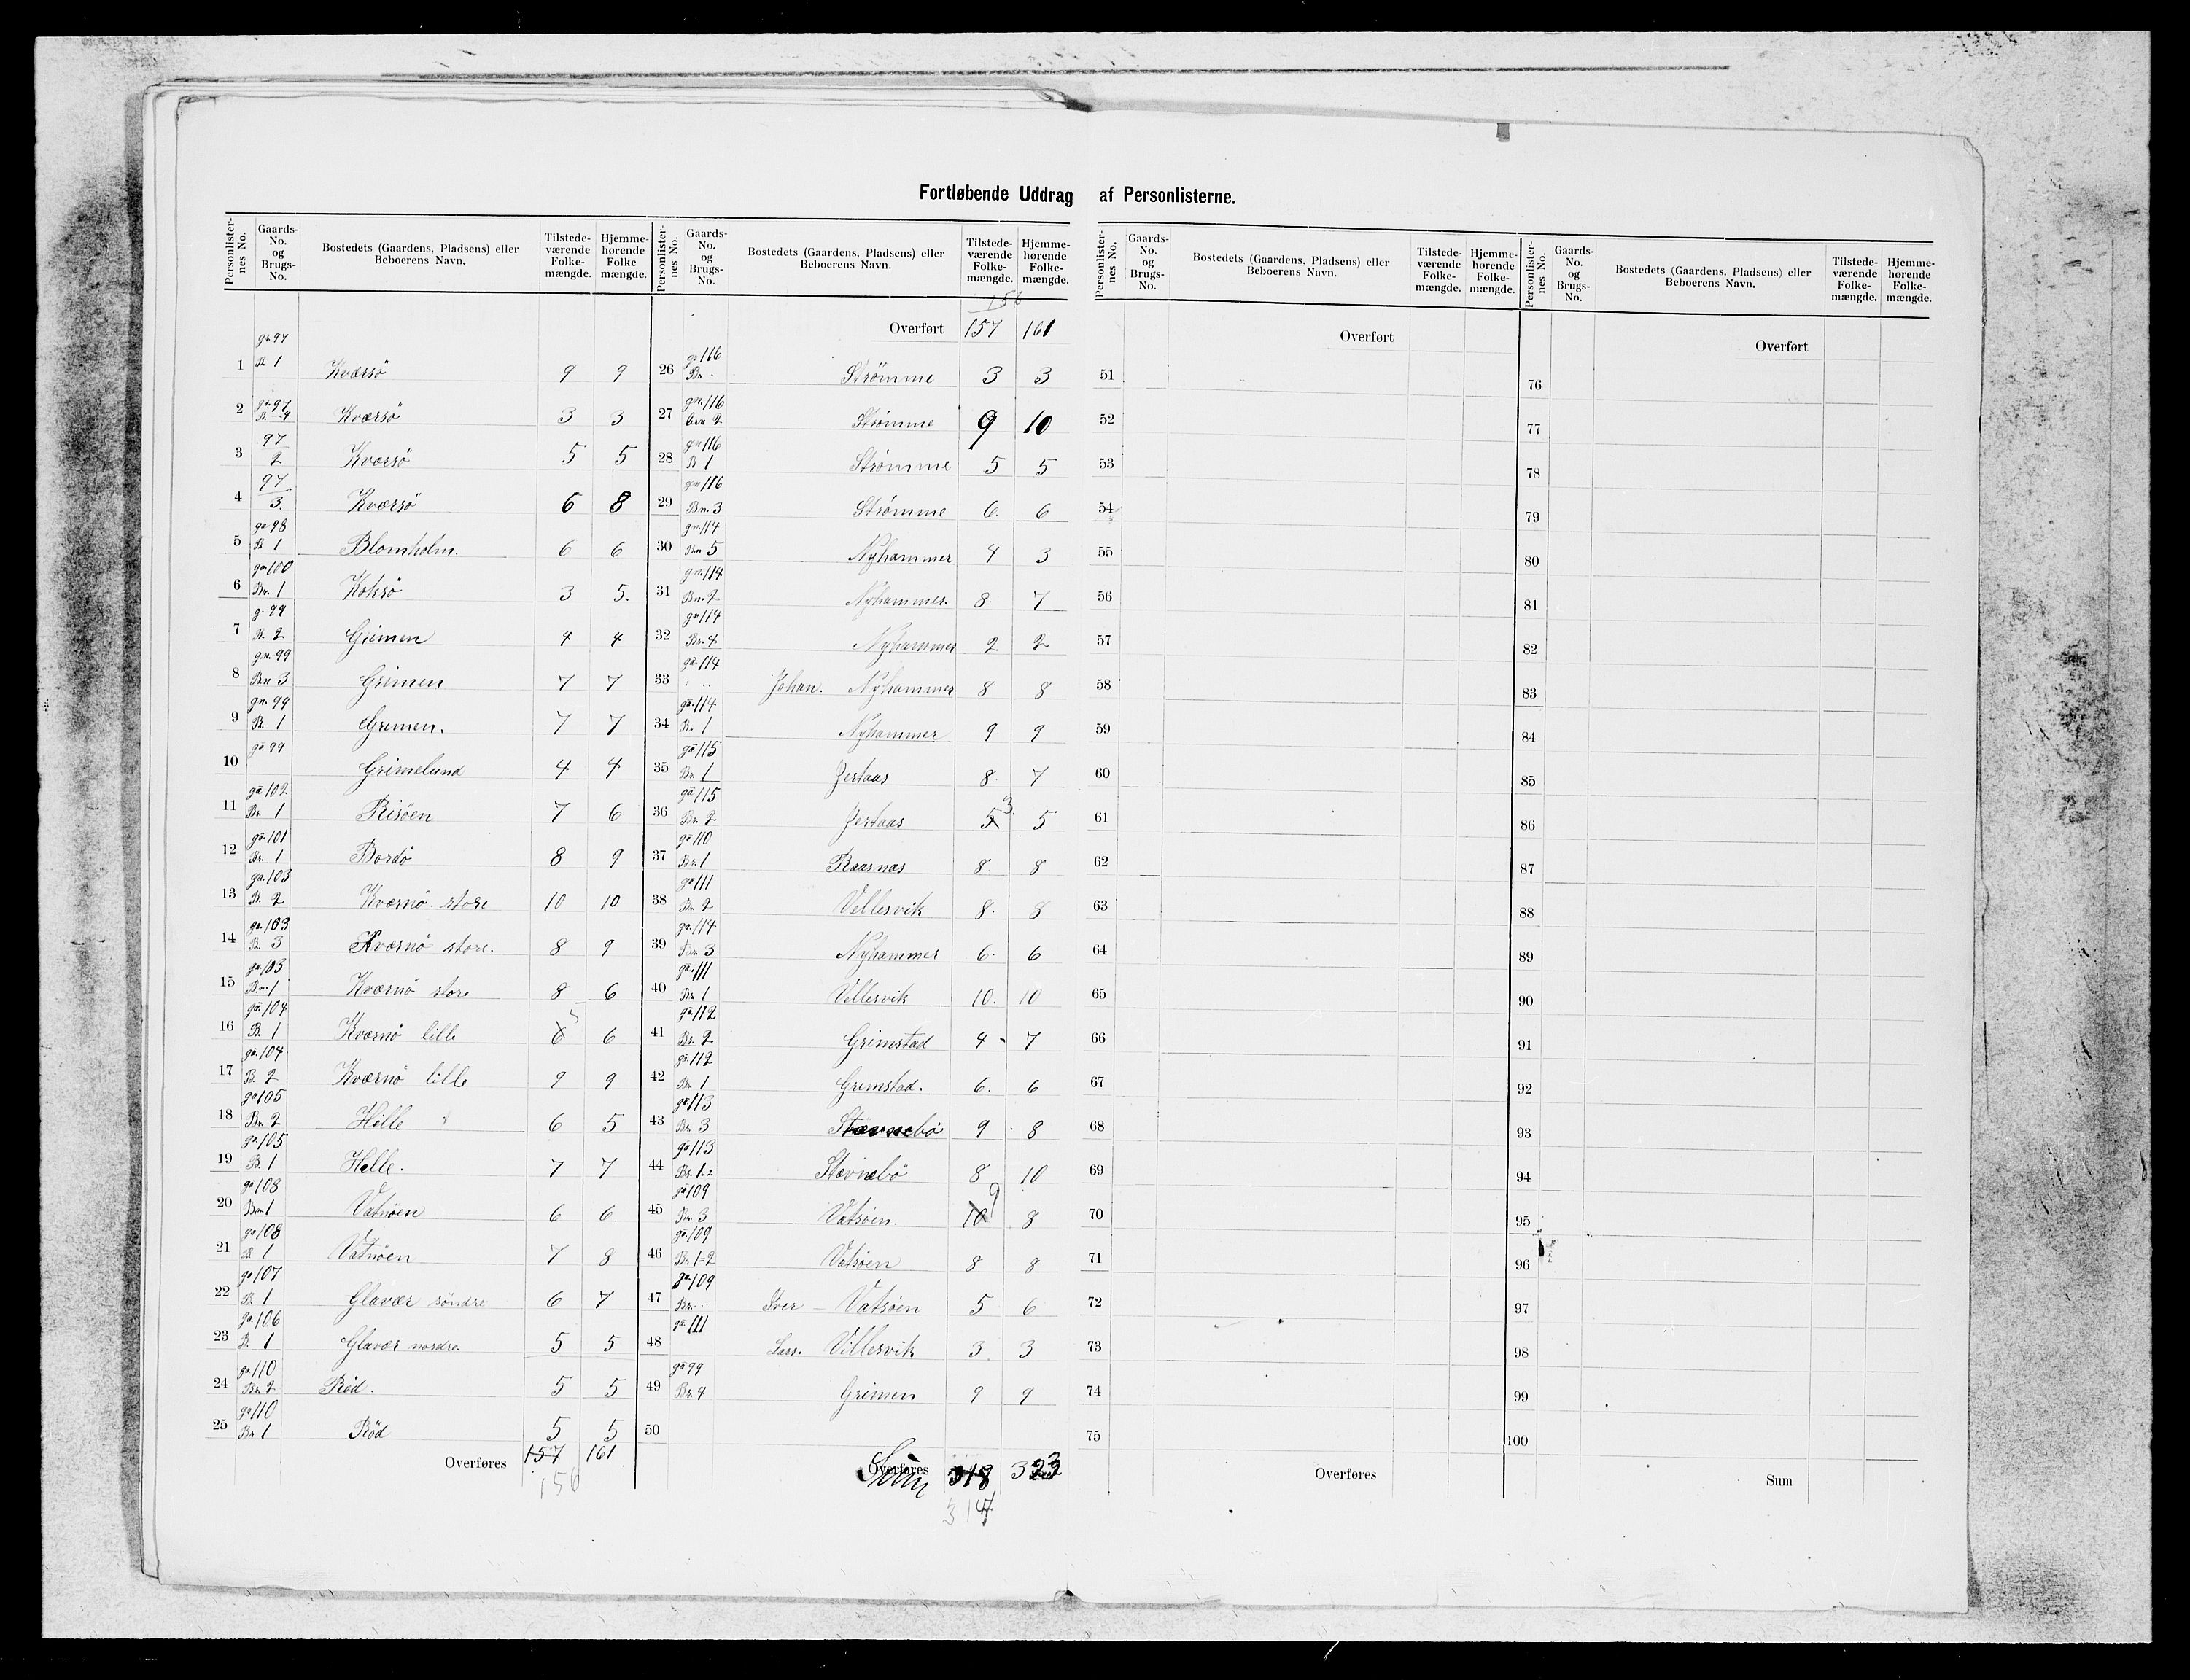 Fortløbende Uddrag af Personlisterne.
Personlister-nes No. Gaards-No. og Brugs-No. Bostedets (Gaardens, Pladsens) eller Beboerens Navn. Tilstede-værende Folke-mængde. Hjemme-hørende Folke mængde.
1 gn 97 B. 1 Kværsö 9 9
2 gn. 97 B. 4 Kværsö 3 3
3 97 2 Kværsö 5 5
4 97 3. Kværsö 6 8
5 gn 98 B 1 Blomholm. 6 6
6 gn 100 Bn. 1 Kohsö 3 5.
7 g. 99 B. 2 Grimen 4 4
8 gn. 99 Bn 3 Grimen 7 7
9 gn. 99 B. 1 Grimen. 7 7
10 gn. 99 Grimelund 4 4
11 gn 102 Bn 1 Risöen 7 6
12 gn. 101 Bn. 1 Bordö 8 9
13 gn. 103 B. 2 Kværnö store 10 10
14 gn. 103 B. 3 Kværnö store. 8 9
15 gn. 103 B.n. 1 Kværnö store 8 6
16 gn. 104 B. 1 Kværnö lille 6 5 6
17 gn. 104 B. 2 Kværnö lille 9 9
18 gn 105 Bn. 2 Hille 6 5
19 gn. 105 B. 1 Helle. 7 7
20 gn 108 Bn 1 Vatnöen 6 6
21 gn 108 B. 1 Vatnöen 7 8
22 gn 107 B. 1 Glavær söndre 6 7
23 gn. 106 B. 1 Glavær nordre. 5 5
24 gn. 110 Bn. 2 Röd. 5 5
25 gn 110 Bn 1 Röd 5 5
Overføres 157 161
156
Personlister-nes No. Gaards-No. og Brugs-No. Bostedets (Gaardens, Pladsens) eller Beboerens Navn. Tilstede-værende Folke-mængde. Hjemme-hørende Folke-mængde.
156
Overført 157 161
26 gn 116 Bn . Strömme 3 3
27 gn. 116 Bn 2 Strömme 9 10
28 gn 116 B 1 Strömme 5 5
29 gn 116 Bn. 3 Strömme 6. 6
30 gn. 114 Bn 5 Nyhammer 4 3
31 gn. 114 Bn. 2 Nyhammer. 8. 7
32 gn 114 Bn. 4 Nyhammer 2 2
33 gn. 114 Johan. Nyhammer 8 8
34 gn. 114 Bn. 1 Nyhammer 9 9
35 gn 115 Bn. 1 Jertaas 8. 7
36 gn 115 Bn. 2 Jertaas 5 3. 5
37 gn 110 Bn. 1 Raasnæs 8 8
38 gn 111 Bn. 2 Vellesvik 8. 8
39 gn. 114 Bn. 3 Nyhammer 6. 6
40 gn. 111 Bn. 1 Vellesvik 10. 10
41 gn. 112 Bn. 2 Grimstad 4 - 7
42 gn. 112 Bn. 1 Grimstad. 6. 6
43 gn 113 Bn. 3 Stævnebö 9 8
44 gn 113 Bn. 1-2 Stævnebö 8 10
45 gn 109 Bn. 3 Vatsöen. 10 9 8
46 gn. 109 Bn 1-2 Vatsöen 8 8
47 gn. 109 Bn. Iver - Vatsöen 5 6
48 gn. 111 Lars. Villesvik 3 3
49 gn 99 Bn. 4 Grimen 9 9
50
Overføres Sum 318 323
314
Personlister-nes No. Gaards-No. og Brugs-No. Bostedets (Gaardens, Pladsens) eller Beboerens Navn. Tilstede-værende Folke-mængde. Hjemme-hørende Folke-mængde.
Overført
51
52
53
54
55
56
57
58
59
60
61
62
63
64
65
66
67
68
69
70
71
72
73
74
75
Overføres
Personlister-nes No. Gaards-No. og Brugs-No. Bostedets (Gaardens, Pladsens) eller Beboerens Navn. Tilstede-værende Folke-mængde. Hjemme-hørende Folke-mængde.
Overført
76
77
78
79
80
81
82
83
84
85
86
87
88
89
90
91
92
93
94
95
96
97
98
99
100
Sum